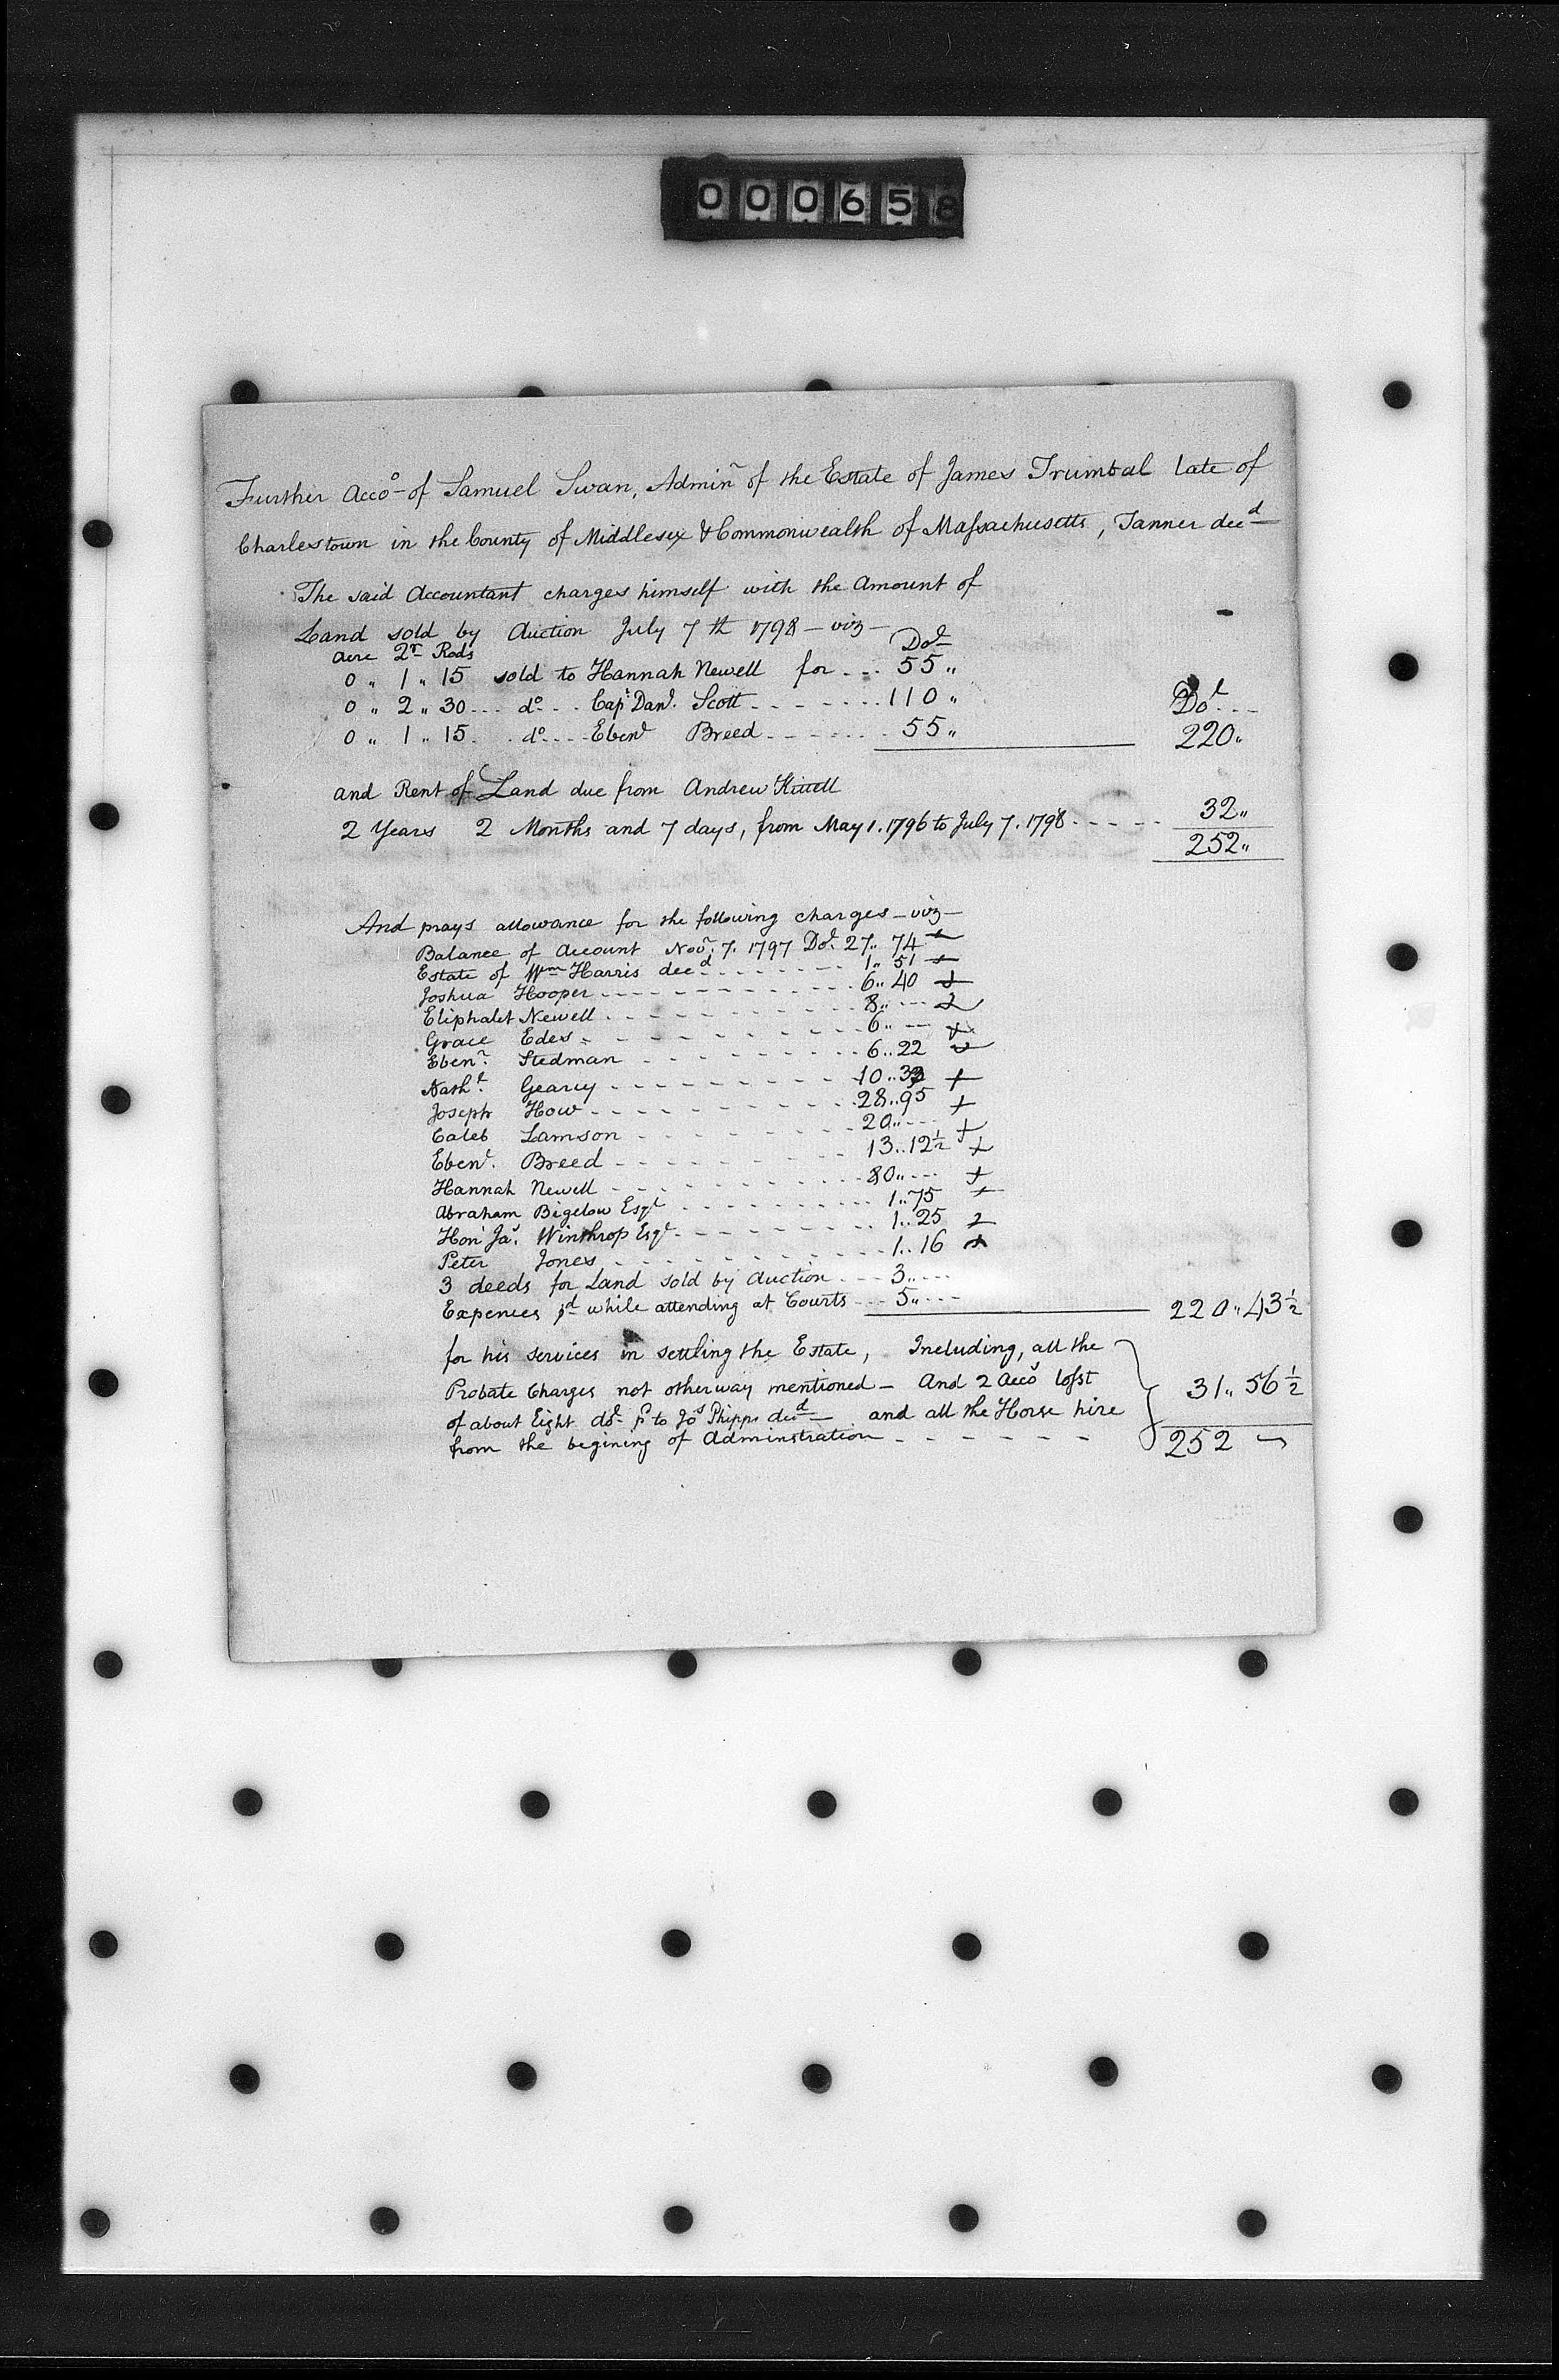 000658
Further Acco of Samuel Swan, Adminr of the Estate of James Trumbal late of
Charlestown in the County of Middlesex & Commonwealth of Massachusetts, Tanner decd
The said Accountant charges himself with the Amount of
Land sold by Auction July 7th 1798 – viz –
Acre Qr Rods Dols
0 " 1 " 15 sold to Hannah Newell for - - - 55 "
0 " 2 " 30 - - - do - - Capt Danl. Scott - - - - - - - 110 " Dol - - -
0 " 1 " 15 - - do - - - Ebenr Breed - - - - - - - 55 " 220 "
and Rent of Land due from Andrew Kittell
2 Years 2 Months and 7 days, from May 1. 1796 to July 7. 1798 - - - - - 32 "
252 "
And prays allowance for the following charges – viz –
Balance of Account Novr. 7. 1797 Dol. 27 " 74
Estate of Wm Harris decd - - - - - - - 1 " 51
Joshua Hooper - - - - - - - - - - - 6 " 40
Eliphalet Newell - - - - - - - - - - 8 " - - -
Grace Edes - - - - - - - - - - - 6 " - -
Ebenr. Stedman - - - - - - - - - 6 " 22
Nathl. Gearey - - - - - - - - - - 10 " 33
Joseph How - - - - - - - - - - - 28 " 95
Caleb Lamson - - - - - - - - - 20 " - - -
Ebenr. Breed - - - - - - - - - - 13 " 12½
Hannah Newell - - - - - - - - - - 80 " - - -
Abraham Bigelow Esqr - - - - - - - - - 1 " 75
Hon Jas. Winthrop Esqr - - - - - - - - 1 " 25
Peter Jones - - - - - - - - - - - - 1 " 16
3 deeds for Land sold by Auction - - - 3 " - - -
Expences pd while attending at Courts - - - 5 " - - - 220 " 43½
for his services in settling the Estate, Including, all the
Probate Charges not otherway mentioned – And 2 Accos losst
of about Eight dols pd to Jos Phipps decd – and all the Horse hire 31 " 56½
from the begining of Adminstration - - - - - - - 252